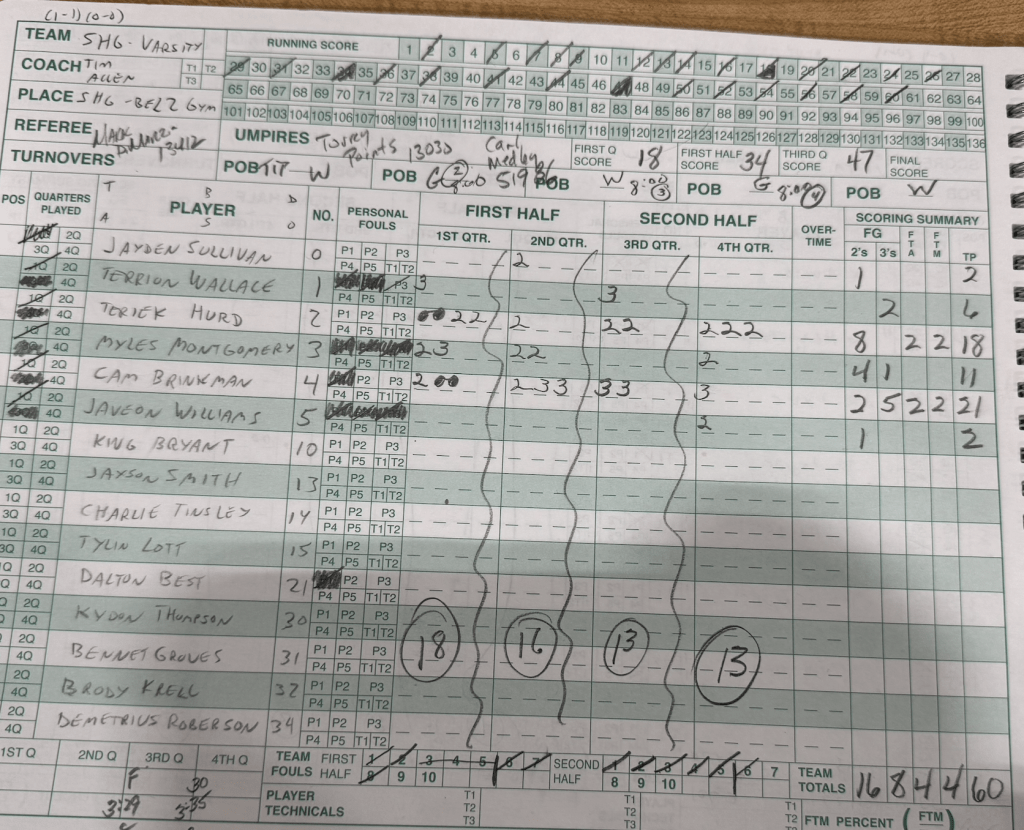 (1-1)(0-0)
TEAM SHG-VARSITY RUNNING SCORE 1 2 3 4 5 6 7 8 9 10 11 12 13 14 15 16 17 18 19 20 21 22 23 24 25 26 27 28
COACH TIM ALLEN T1 T2 T3 29 30 31 32 33 34 35 36 37 38 39 40 41 42 43 44 45 46 47 48 49 50 51 52 53 54 55 56 57 58 59 60 61 62 63 64
65 66 67 68 69 70 71 72 73 74 75 76 77 78 79 80 81 82 83 84 85 86 87 88 89 90 91 92 93 94 95 96 97 98 99 100
PLACE SHG-BELZ GYM 101 102 103 104 105 106 107 108 109 110 111 112 113 114 115 116 117 118 119 120 121 122 123 124 125 126 127 128 129 130 131 132 133 134 135 136
REFEREE MARK UMPIRES Torrey Points 13030 Carl Medley FIRST Q SCORE 18 FIRST HALF SCORE 34 THIRD Q SCORE 47 FINAL SCORE
TURNOVERS POB TIP W POB G 2 POB W 8:00 3 POB G 8:00 4 POB W
POS QUARTERS PLAYED TABS PLAYER NO. PERSONAL FOULS FIRST HALF SECOND HALF OVER-TIME SCORING SUMMARY
1ST QTR. 2ND QTR. 3RD QTR. 4TH QTR. FG 2's 3's FTA FTM TP
JAYDEN SULLIVAN 0 P1 P2 P3 P4 P5 T1 T2 2 1 2
TERRION WALLACE 1 P3 P4 P5 T1 T2 3 3 2 6
TERIEK HURD 2 P1 P2 P3 P4 P5 T1 T2 22 2 22 222 8 2 2 18
MYLES MONTGOMERY 3 P4 P5 T1 T2 23 22 2 4 1 11
CAM BRINKMAN 4 P2 P3 P4 P5 T1 T2 2 233 33 3 2 5 2 2 21
JAVEON WILLIAMS 5 P4 P5 T1 T2 2 1 2
KING BRYANT 10 P1 P2 P3 P4 P5 T1 T2
JAYSON SMITH 13 P1 P2 P3 P4 P5 T1 T2
CHARLIE TINSLEY 14 P1 P2 P3 P4 P5 T1 T2
TYLIN LOTT 15 P1 P2 P3 P4 P5 T1 T2
DALTON BEST 21 P2 P3 P4 P5 T1 T2
KYDON THOMPSON 30 P1 P2 P3 P4 P5 T1 T2
BENNET GROVES 31 P1 P2 P3 P4 P5 T1 T2 18 16 13 13
BRODY KRELL 32 P1 P2 P3 P4 P5 T1 T2
DEMETRIUS ROBERSON 34 P1 P2 P3 P4 P5 T1 T2
1ST Q 2ND Q 3RD Q 4TH Q TEAM FOULS FIRST HALF 1 2 3 4 5 6 7 8 9 10 SECOND HALF 1 2 3 4 5 6 7 8 9 10 TEAM TOTALS 16 8 4 4 60
F 30
3:29 3:35
PLAYER TECHNICALS T1 T2 T3 T1 T2 T3 T1 T2 FTM PERCENT (FTM